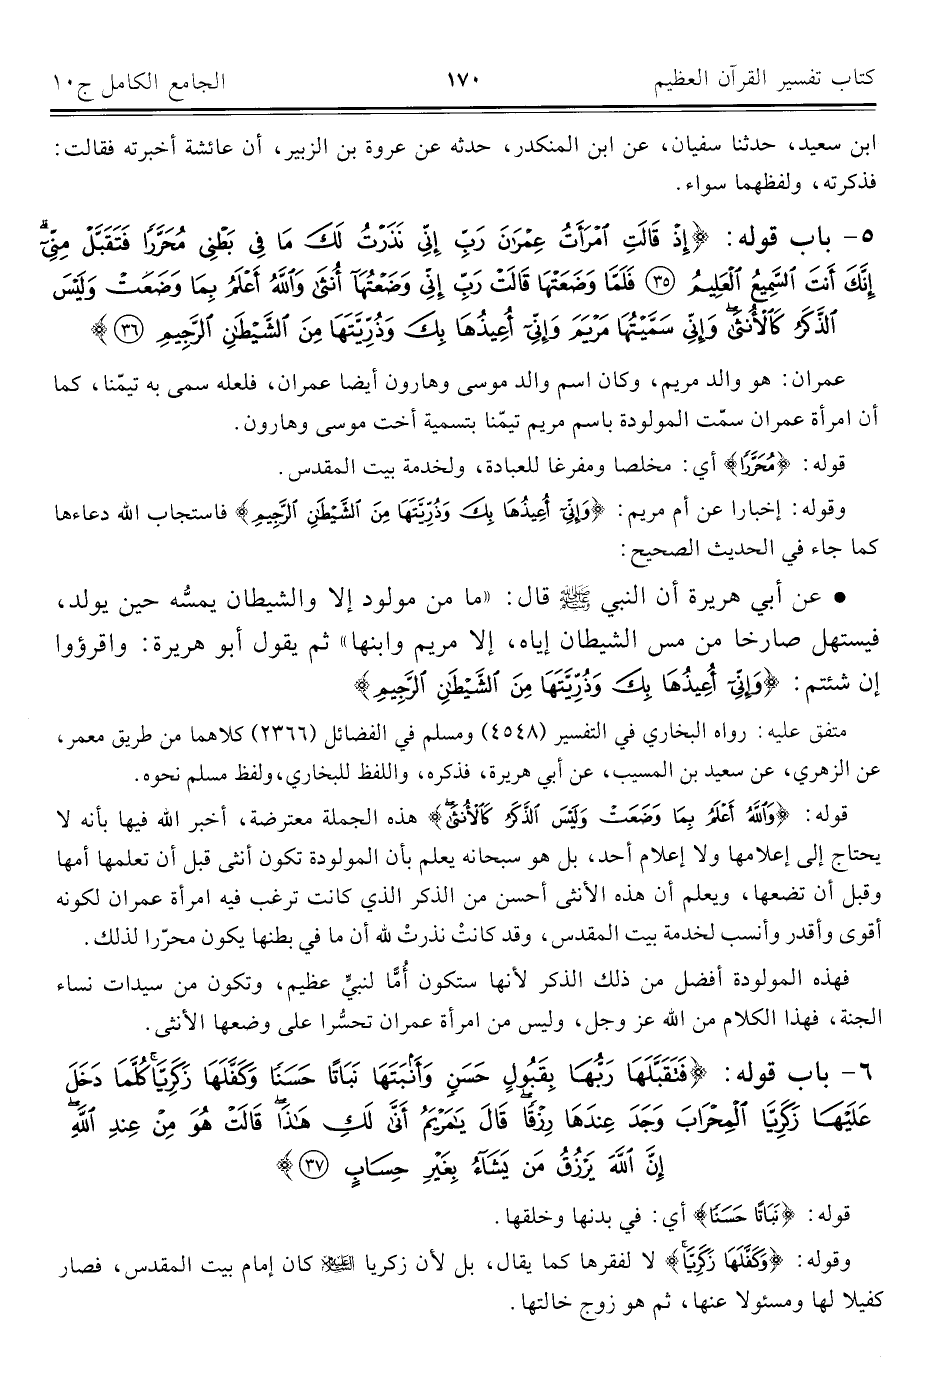 كتاب تفسير القرآن العظيم ١٧٠ الجامع الكامل ج١٠
ابن سعيد، حدثنا سفيان، عن ابن المنكدر، حدثه عن عروة بن الزبير، أن عائشة أخبرته فقالت:
فذكرته، ولفظهما سواء.
٥- باب قوله: ﴿إِذْ قَالَتِ ٱمْرَأَتُ عِمْرَٰنَ رَبِّ إِنِّي نَذَرْتُ لَكَ مَا فِي بَطْنِي مُحَرَّرًا فَتَقَبَّلْ مِنِّيٓ ۖ
إِنَّكَ أَنتَ ٱلسَّمِيعُ ٱلْعَلِيمُ ﴿٣٥﴾ فَلَمَّا وَضَعَتْهَا قَالَتْ رَبِّ إِنِّي وَضَعْتُهَآ أُنثَىٰ وَٱللَّهُ أَعْلَمُ بِمَا وَضَعَتْ وَلَيْسَ
ٱلذَّكَرُ كَٱلْأُنثَىٰ ۖ وَإِنِّي سَمَّيْتُهَا مَرْيَمَ وَإِنِّيٓ أُعِيذُهَا بِكَ وَذُرِّيَّتَهَا مِنَ ٱلشَّيْطَٰنِ ٱلرَّجِيمِ ﴿٣٦﴾﴾
عمران: هو والد مريم، وكان اسم والد موسى وهارون أيضا عمران، فلعله سمى به تيمّنا، كما
أن امرأة عمران سمّت المولودة باسم مريم تيمّنا بتسمية أخت موسى وهارون.
قوله: ﴿مُحَرَّرًا﴾ أي: مخلصا ومفرغا للعبادة، ولخدمة بيت المقدس.
وقوله: إخبارا عن أم مريم: ﴿وَإِنِّيٓ أُعِيذُهَا بِكَ وَذُرِّيَّتَهَا مِنَ ٱلشَّيْطَٰنِ ٱلرَّجِيمِ﴾ فاستجاب الله دعاءها
كما جاء في الحديث الصحيح:
• عن أبي هريرة أن النبي ﷺ قال: «ما من مولود إلا والشيطان يمسُّه حين يولد،
فيستهل صارخا من مس الشيطان إياه، إلا مريم وابنها» ثم يقول أبو هريرة: واقرؤوا
إن شئتم: ﴿وَإِنِّيٓ أُعِيذُهَا بِكَ وَذُرِّيَّتَهَا مِنَ ٱلشَّيْطَٰنِ ٱلرَّجِيمِ﴾
متفق عليه: رواه البخاري في التفسير (٤٥٤٨) ومسلم في الفضائل (٢٣٦٦) كلاهما من طريق معمر،
عن الزهري، عن سعيد بن المسيب، عن أبي هريرة، فذكره، واللفظ للبخاري، ولفظ مسلم نحوه.
قوله: ﴿وَٱللَّهُ أَعْلَمُ بِمَا وَضَعَتْ وَلَيْسَ ٱلذَّكَرُ كَٱلْأُنثَىٰ ۖ﴾ هذه الجملة معترضة، أخبر الله فيها بأنه لا
يحتاج إلى إعلامها ولا إعلام أحد، بل هو سبحانه يعلم بأن المولودة تكون أنثى قبل أن تعلمها أمها
وقبل أن تضعها، ويعلم أن هذه الأنثى أحسن من الذكر الذي كانت ترغب فيه امرأة عمران لكونه
أقوى وأقدر وأنسب لخدمة بيت المقدس، وقد كانتْ نذرتْ لله أن ما في بطنها يكون محرّرا لذلك.
فهذه المولودة أفضل من ذلك الذكر لأنها ستكون أُمًّا لنبيٍّ عظيم، وتكون من سيدات نساء
الجنة، فهذا الكلام من الله عز وجل، وليس من امرأة عمران تحسُّرا على وضعها الأنثى.
٦- باب قوله: ﴿فَتَقَبَّلَهَا رَبُّهَا بِقَبُولٍ حَسَنٍ وَأَنۢبَتَهَا نَبَاتًا حَسَنًا وَكَفَّلَهَا زَكَرِيَّا ۖ كُلَّمَا دَخَلَ
عَلَيْهَا زَكَرِيَّا ٱلْمِحْرَابَ وَجَدَ عِندَهَا رِزْقًا ۖ قَالَ يَٰمَرْيَمُ أَنَّىٰ لَكِ هَٰذَا ۖ قَالَتْ هُوَ مِنْ عِندِ ٱللَّهِ ۖ
إِنَّ ٱللَّهَ يَرْزُقُ مَن يَشَآءُ بِغَيْرِ حِسَابٍ ﴿٣٧﴾﴾
قوله: ﴿نَبَاتًا حَسَنًا﴾ أي: في بدنها وخلقها.
وقوله: ﴿وَكَفَّلَهَا زَكَرِيَّا ۖ﴾ لا لفقرها كما يقال، بل لأن زكريا عليه السلام كان إمام بيت المقدس، فصار
كفيلا لها ومسئولا عنها، ثم هو زوج خالتها.